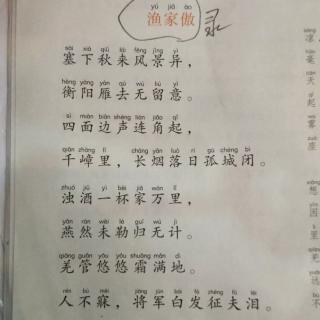 yú jiā ào
渔家傲 录
sài xià qiū lái fēng jǐng yì
塞下秋来风景异，
héng yáng yàn qù wú liú yì
衡阳雁去无留意。
sì miàn biān shēng lián jiǎo qǐ
四面边声连角起，
qiān zhàng lǐ cháng yān luò rì gū chéng bì
千嶂里，长烟落日孤城闭。
zhuó jiǔ yì bēi jiā wàn lǐ
浊酒一杯家万里，
yān rán wèi lè guī wú jì
燕然未勒归无计。
qiāng guǎn yōu yōu shuāng mǎn dì
羌管悠悠霜满地。
rén bú mèi jiāng jūn bái fà zhēng fū lèi
人不寐，将军白发征夫泪。